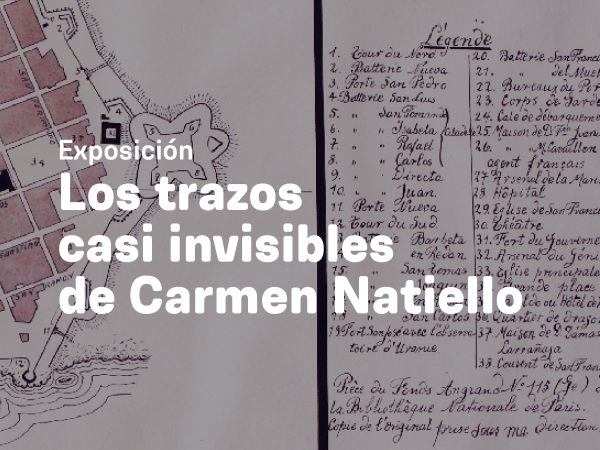 Exposición
Los trazos
casi invisibles
de Carmen Natiello
Légende
1. Tour du Nord
2. Batterie Nueva
3. Porte San Pedro
4 Batterie San Luis
5. " San Fernando
6. " Isabela
7. " Rafael
8. " Carlos
9. " Directa
10. " Juan
11. Porte Nueva
12. Tour du Sud
Barbeta
en Rédan
15. " San Tomas
San Carlos
19 Fort San José avec l'observa
toire d'Uranie
20. Batterie San Franci
21. " del Muel
22. Bureaux du Por
23. Corps de Garde
24. Cale de débarqueme
25. Maison de
26. "
agent français
27. Arsenal de la Mari
28. Hôpital
29. Eglise de San France
30. Théatre
31. Fort du Gouverne
32. Arsenal du Géni
33. Eglise principale
Grande place
36. Quartier de Drago
37. Maison de D. Damas
Larrañaga
38. Couvent de San Fran
Pièce du Fonds Angrand Nº 118 (Ge) d
la Bibliothèque Nationale de Paris.
Copie de l'original prise sous ma direction